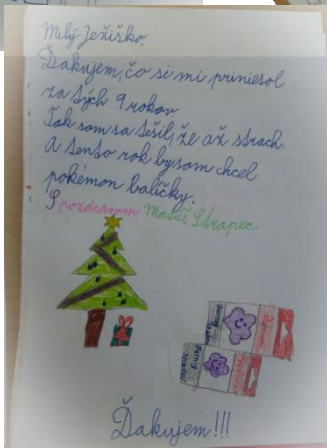 Milý Ježiško.
Ďakujem, čo si mi priniesol
za tých 9 rokov
Tak som sa tešil, že až strach.
A tento rok by som chcel
pokémon balíčky.
S pozdravom Matúš
Ďakujem!!!